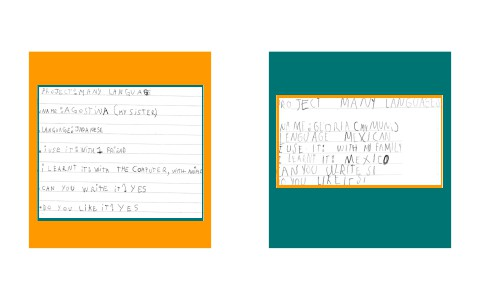 PROJECT: MANY LANGUAGE
NAME: AGOSTINA (MY SISTER)
LANGUAGE: JAPANESE
I USE IT: WITH 1 FRIEND
I LEARNT IT: WITH THE COMPUTER, WITH
CAN YOU WRITE IT? YES
DO YOU LIKE IT? YES
ROJECT MANY LANGUAGES
NAME: GLORIA (MY MUM)
LENGUAGE MEXICAN
EUSE IT: WITH MI FAMILY
E LEARNT IT: MEXICO
AN YOU WRITE SI
O YOU LIKE IT SI